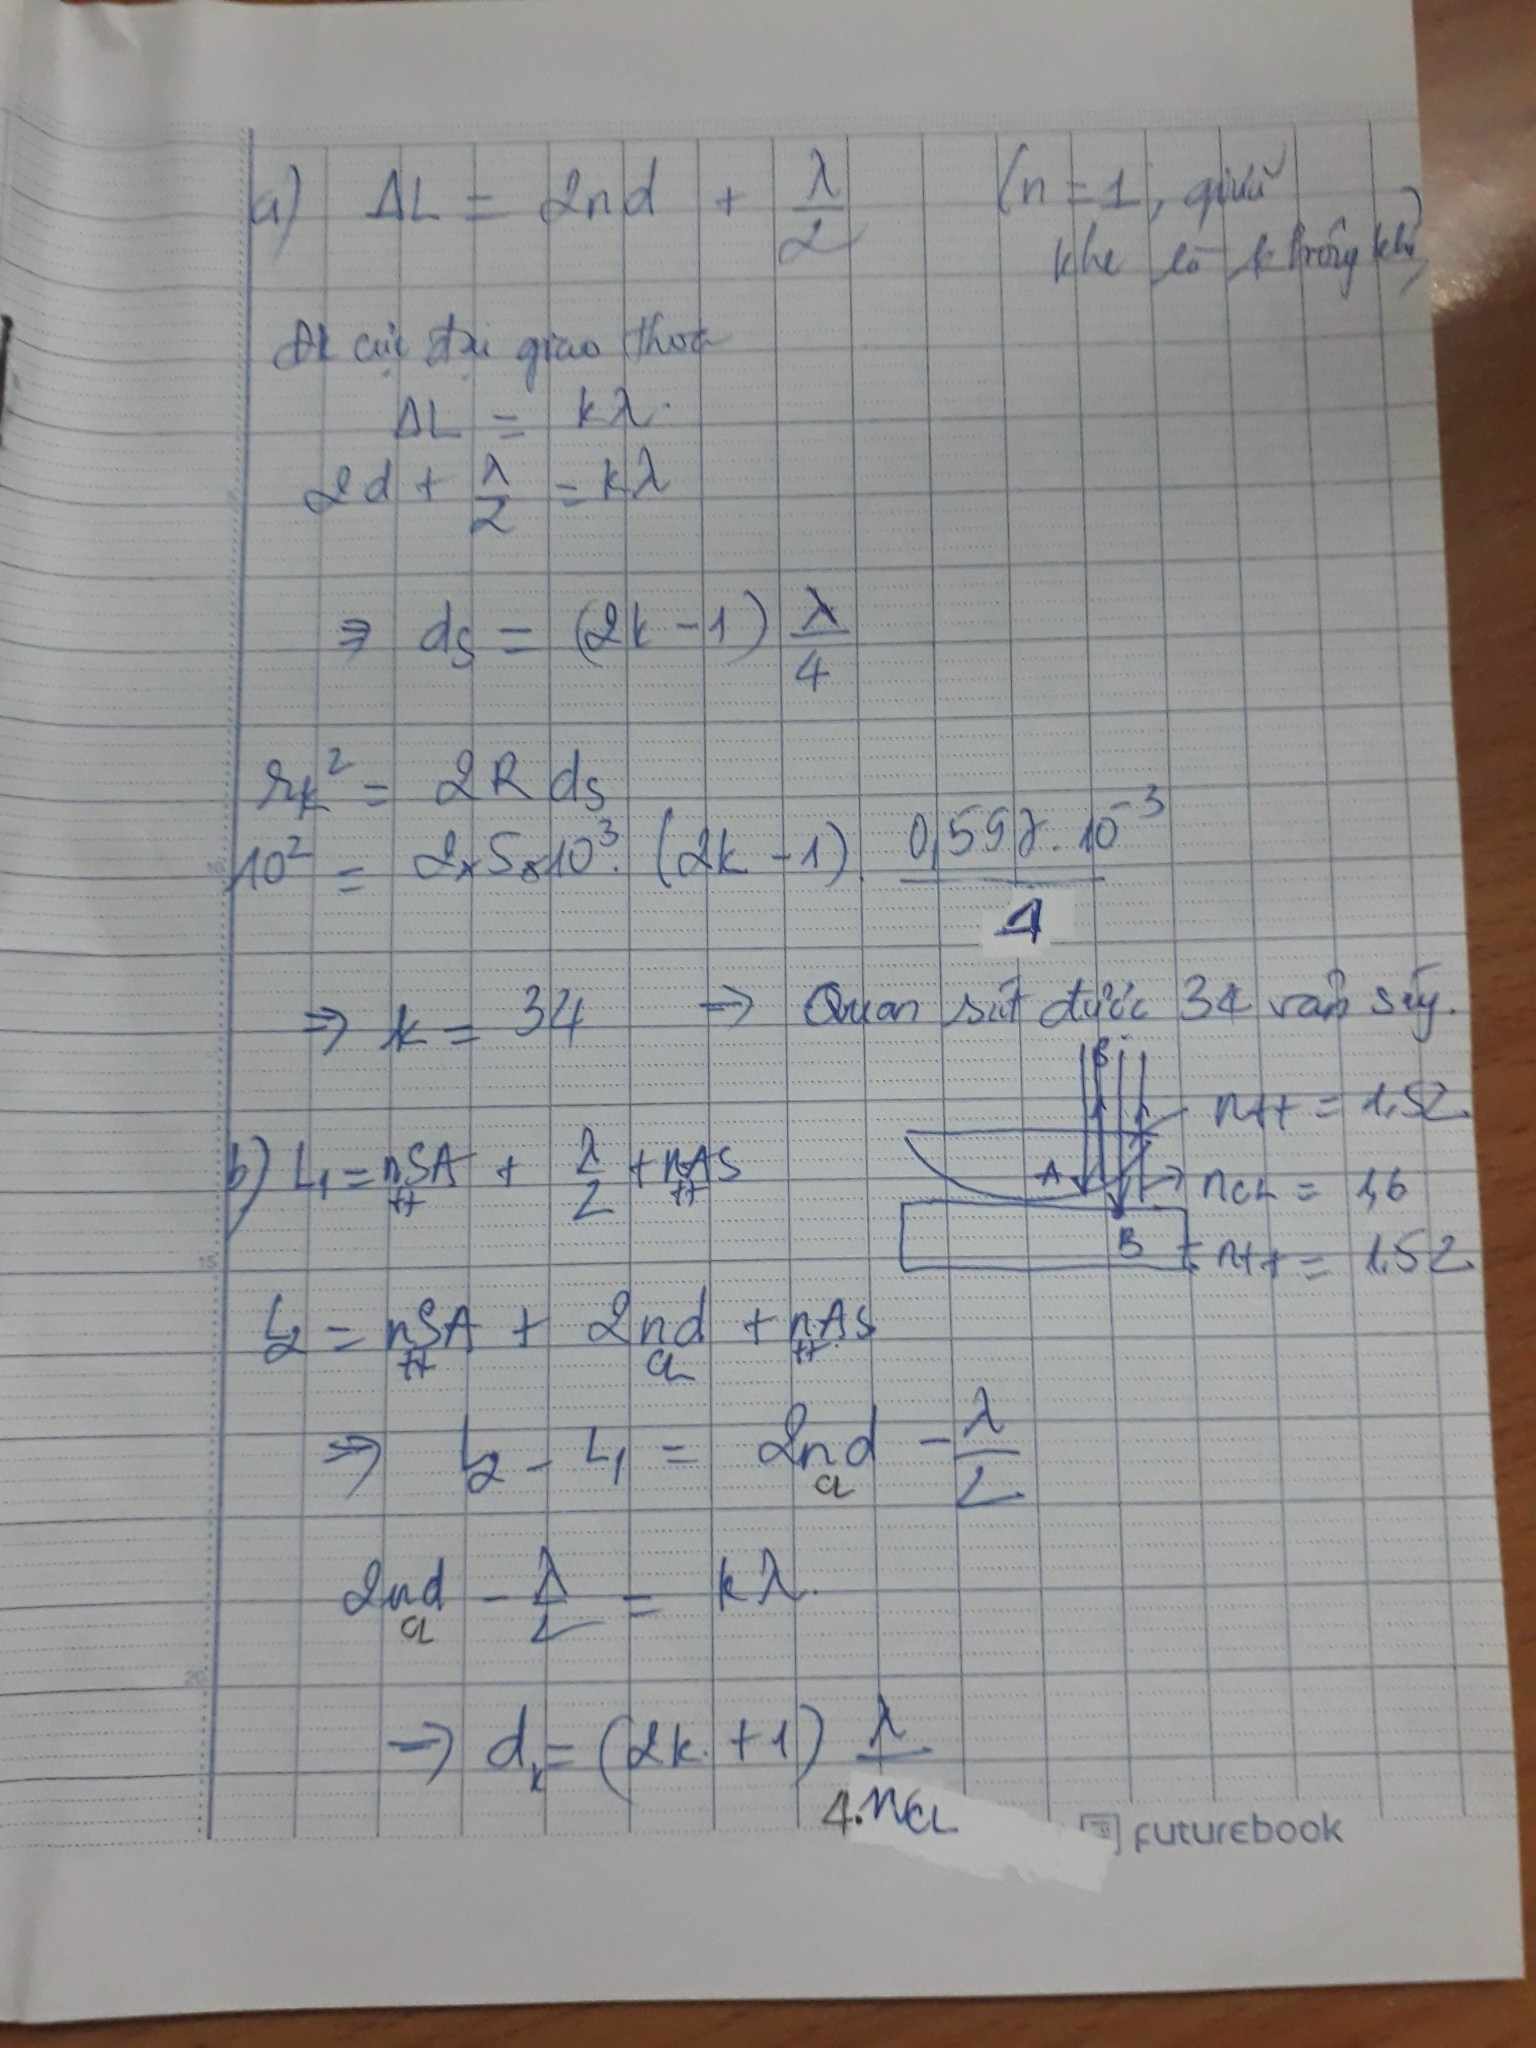 a) ΔL = 2nd + λ/2 (n = 1, giữa
khe là k trông khí)
Đk cực đại giao thoa
ΔL = kλ.
2d + λ/2 = kλ
⇒ ds = (2k - 1) λ/4
rk² = 2R ds
10² = 2x5x10³. (2k - 1). 0,589.10⁻³/4
⇒ k = 34 ⇒ Quan sát được 34 vân sáng.
S
n tt = 1.52
b) L1 = n tt SA + λ/2 + n tt AS
A
nCL = 1,6
B
n tt = 1.52
L2 = n tt SA + 2n cl d + n tt AS
⇒ L2 - L1 = 2n cl d - λ/2
2n cl d - λ/2 = kλ.
⇒ dk = (2k + 1) λ/4.nCL
futurebook